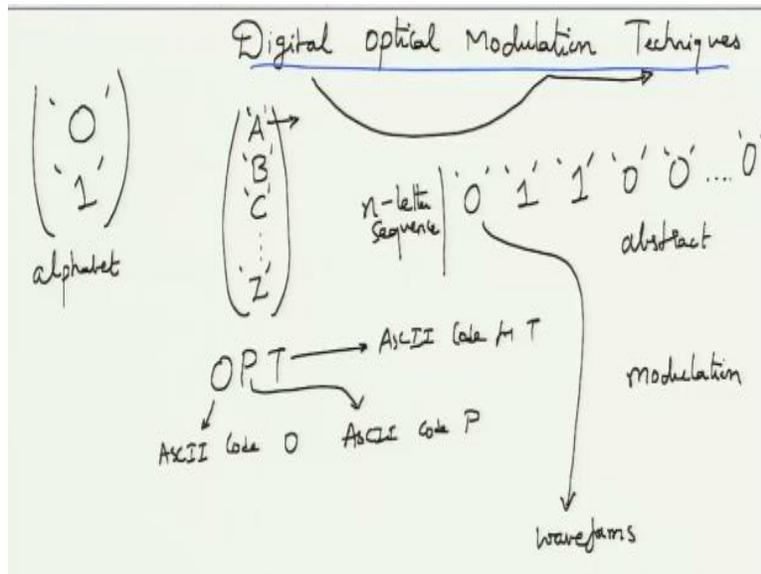 Digital Optical Modulation Techniques
'0'
'1'
alphabet
'A'
'B'
'C'
'Z'
n-letter
sequence
'0' '1' '1' '0' '0' .... '0'
abstract
OPT
ASCII Code for T
ASCII Code O
ASCII Code P
modulation
waveforms